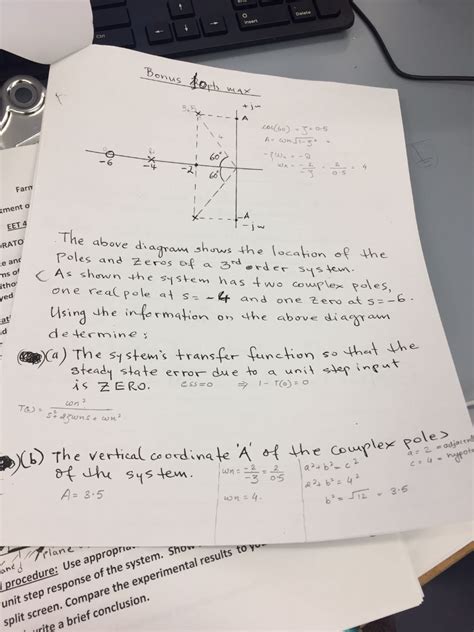 Insert
Delete
Bonus 10pts max
+jw
A
cos(60) = ζ = 0.5
A = wn√1-ζ² =
-ζwn = -2
wn = -2/-ζ = 2/0.5 = 4
60°
60°
-6
-4
-2
-A
-jw
The above diagram shows the location of the
Poles and zeros of a 3rd order system.
As shown the system has two complex poles,
one real pole at s = -4 and one zero at s = -6.
Using the information on the above diagram
determine;
(a) The system's transfer function so that the
steady state error due to a unit step input
is ZERO. ess=0 ⇒ 1-T(0)=0
T(s) = wn²/s²+2ζwns+wn²
(b) The vertical coordinate 'A' of the complex poles
of the system.
A = 3.5
wn = -2/-ζ = 2/0.5
wn = 4.
a²+b²=c²
a²+b²=4²
b²=√12 = 3.5
a = 2 = adjacent
c = 4 = hypote
Farn
EET 4
plane
procedure: Use appropria
unit step response of the system. Show
split screen. Compare the experimental results to yo
write a brief conclusion.